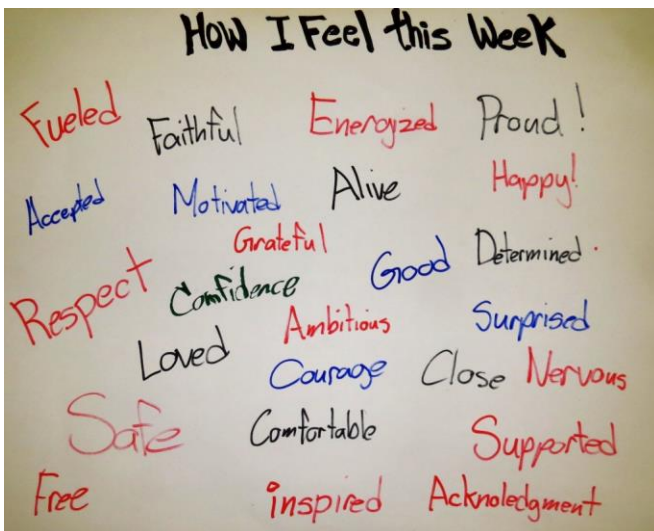 How I Feel this Week
Fueled Faithful Energized Proud!
Accepted Motivated Alive Happy!
Grateful Good Determined.
Respect Comfidence
Ambitious Surprised
Loved Courage Close Nervous
Safe Comfortable Supported
Free inspired Acknoledgment